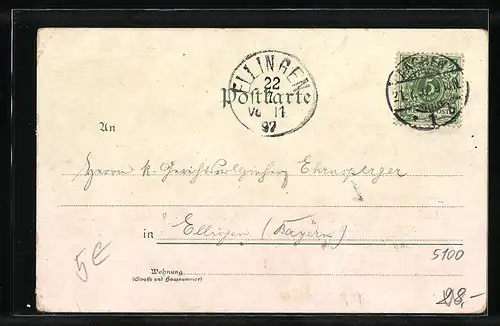 ELLINGEN
22
Vo 11
97
AACHEN
5
1
Postkarte
An
Herrn k. Gerichtsvollzieher
in Ellingen (Bayern)
5100
5€
Wohnung
(Straße und Hausnummer)
98,-